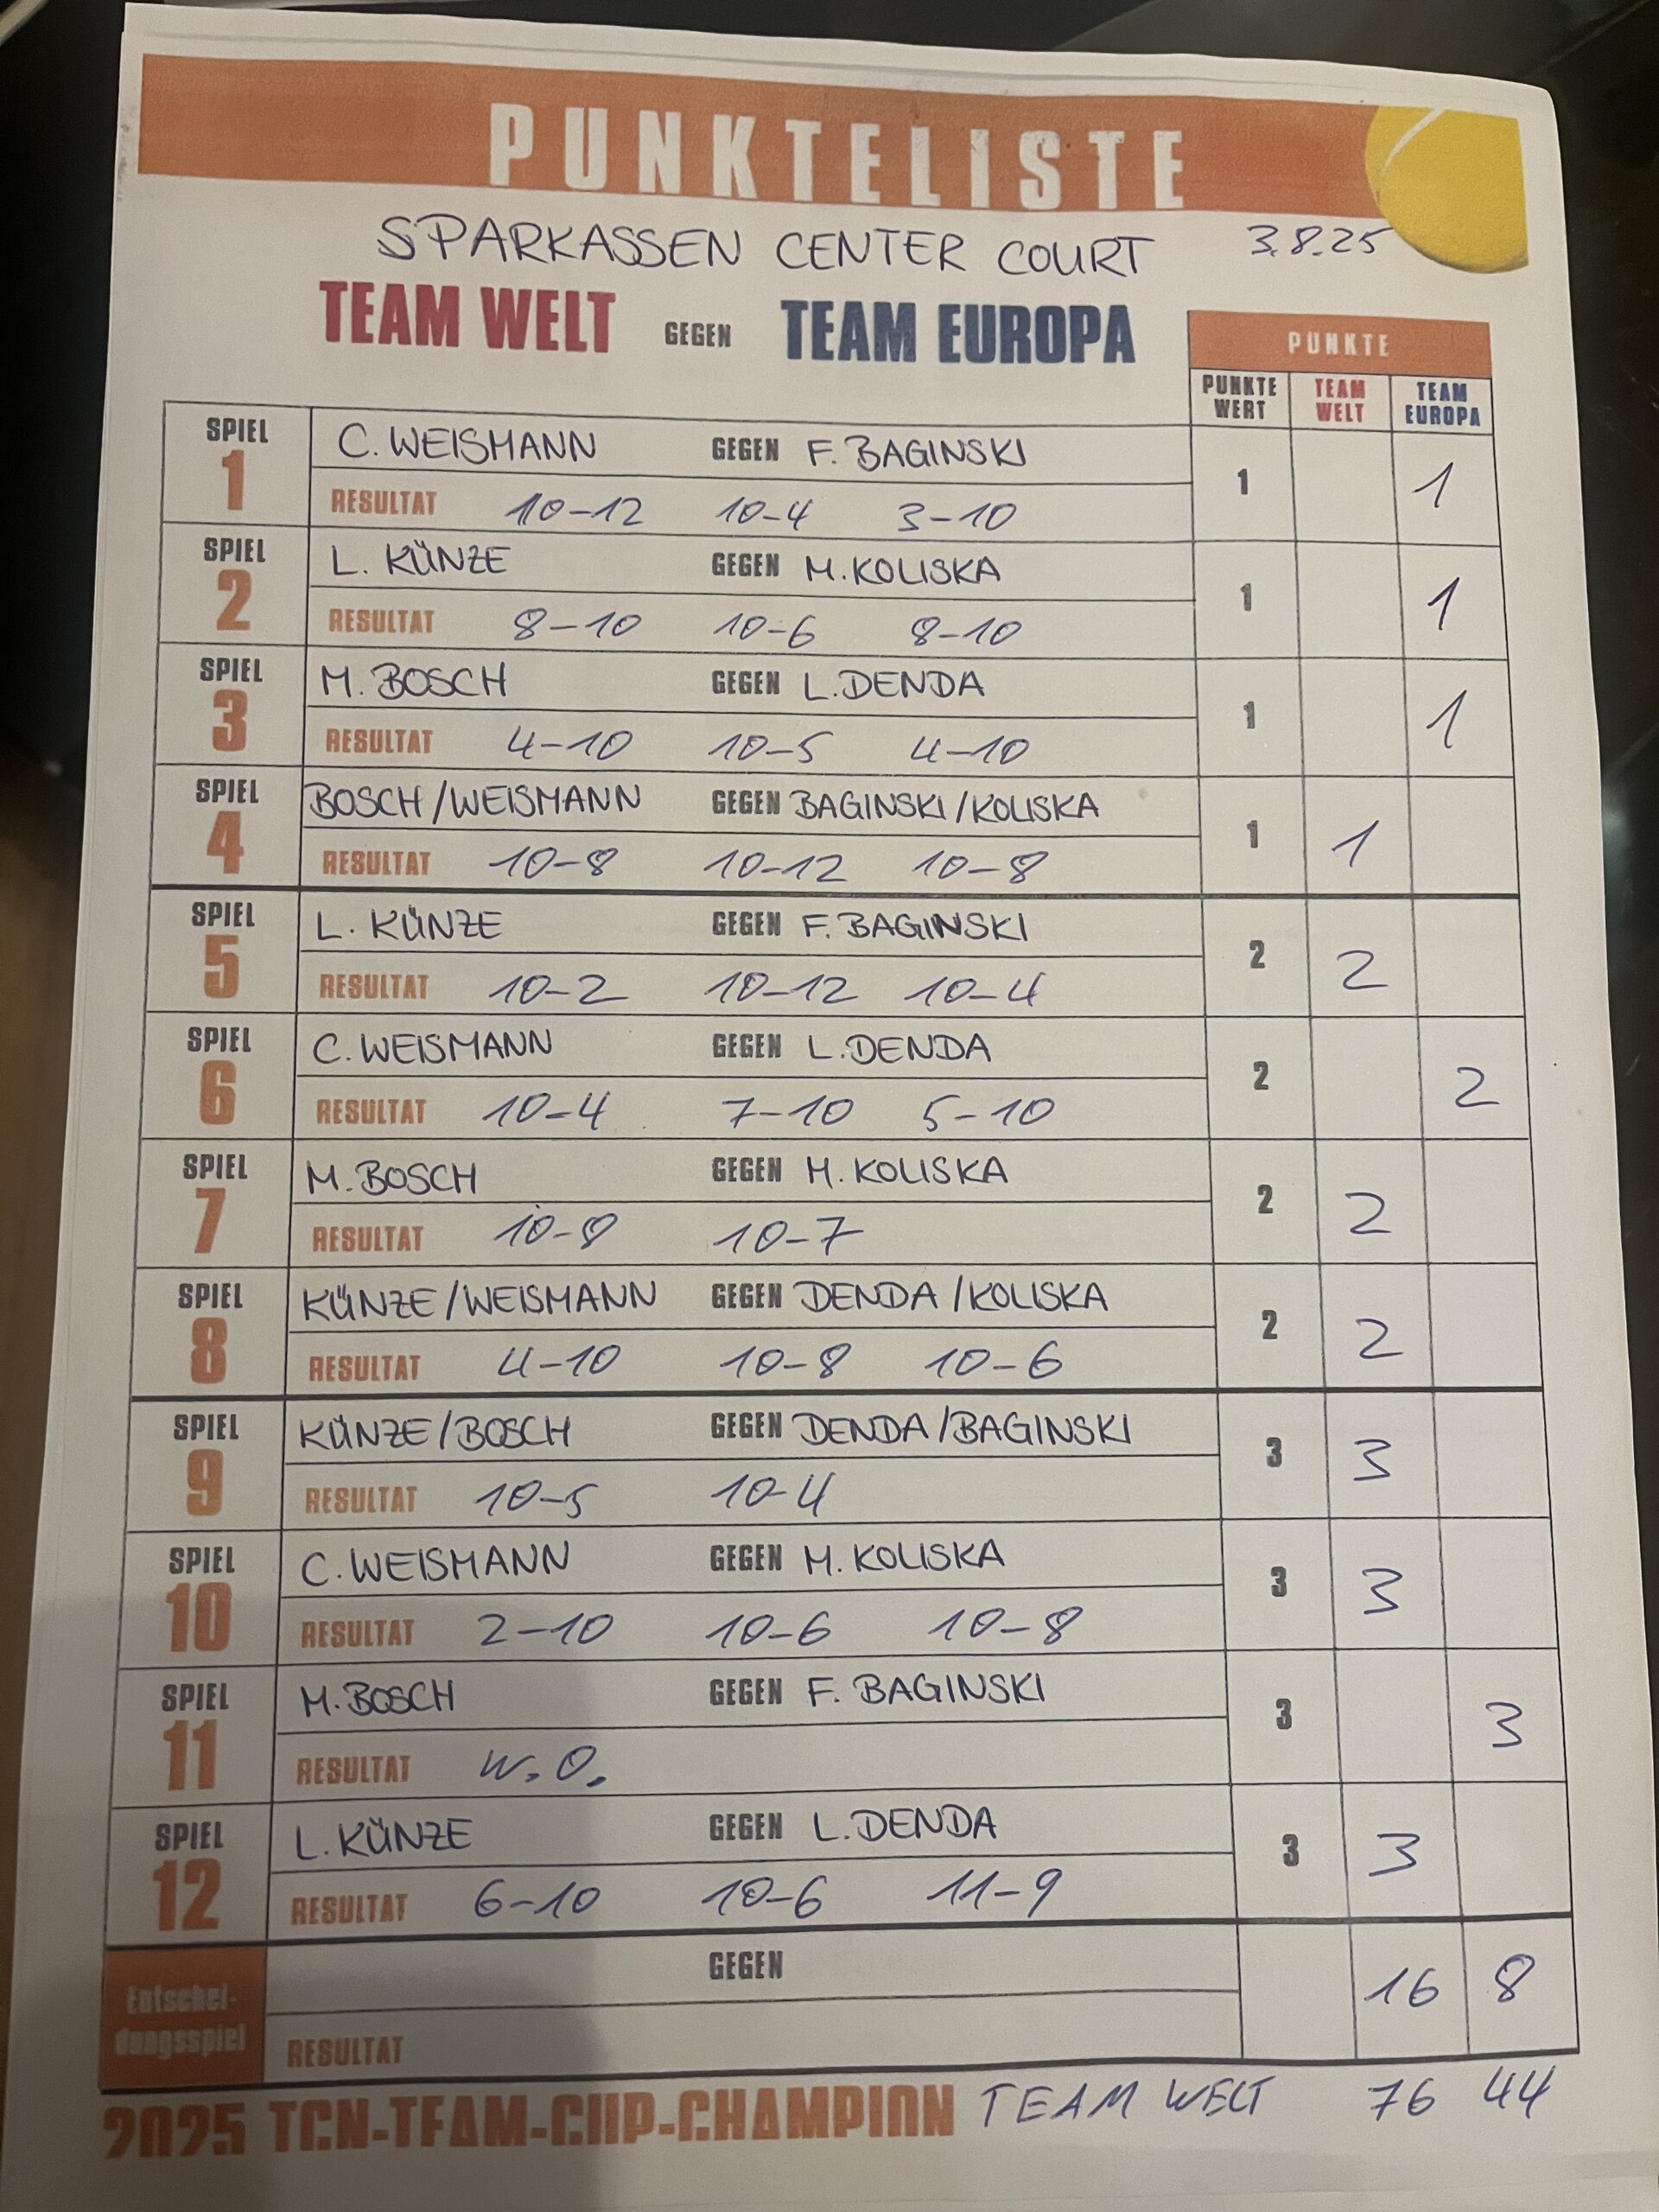 PUNKTELISTE
SPARKASSEN CENTER COURT 3.8.25
TEAM WELT GEGEN TEAM EUROPA
PUNKTE
PUNKTE WERT TEAM WELT TEAM EUROPA
SPIEL 1 C. WEISMANN GEGEN F. BAGINSKI
RESULTAT 10-12 10-4 3-10 1 1
SPIEL 2 L. KÜNZE GEGEN M. KOLISKA
RESULTAT 8-10 10-6 8-10 1 1
SPIEL 3 M. BOSCH GEGEN L. DENDA
RESULTAT 4-10 10-5 4-10 1 1
SPIEL 4 BOSCH/WEISMANN GEGEN BAGINSKI/KOLISKA
RESULTAT 10-8 10-12 10-8 1 1
SPIEL 5 L. KÜNZE GEGEN F. BAGINSKI
RESULTAT 10-2 10-12 10-4 2 2
SPIEL 6 C. WEISMANN GEGEN L. DENDA
RESULTAT 10-4 7-10 5-10 2 2
SPIEL 7 M. BOSCH GEGEN M. KOLISKA
RESULTAT 10-7 2 2
SPIEL 8 KÜNZE/WEISMANN GEGEN DENDA/KOLISKA
RESULTAT 4-10 10-8 10-6 2 2
SPIEL 9 KÜNZE/BOSCH GEGEN DENDA/BAGINSKI
RESULTAT 10-5 10-4 3 3
SPIEL 10 C. WEISMANN GEGEN M. KOLISKA
RESULTAT 2-10 10-6 10-8 3 3
SPIEL 11 M. BOSCH GEGEN F. BAGINSKI
RESULTAT W.O. 3 3
SPIEL 12 L. KÜNZE GEGEN L. DENDA
RESULTAT 6-10 10-6 11-9 3 3
Entschei-dungsspiel GEGEN 16 8
RESULTAT
2025 TCN-TEAM-CUP-CHAMPION TEAM WELT 76 44